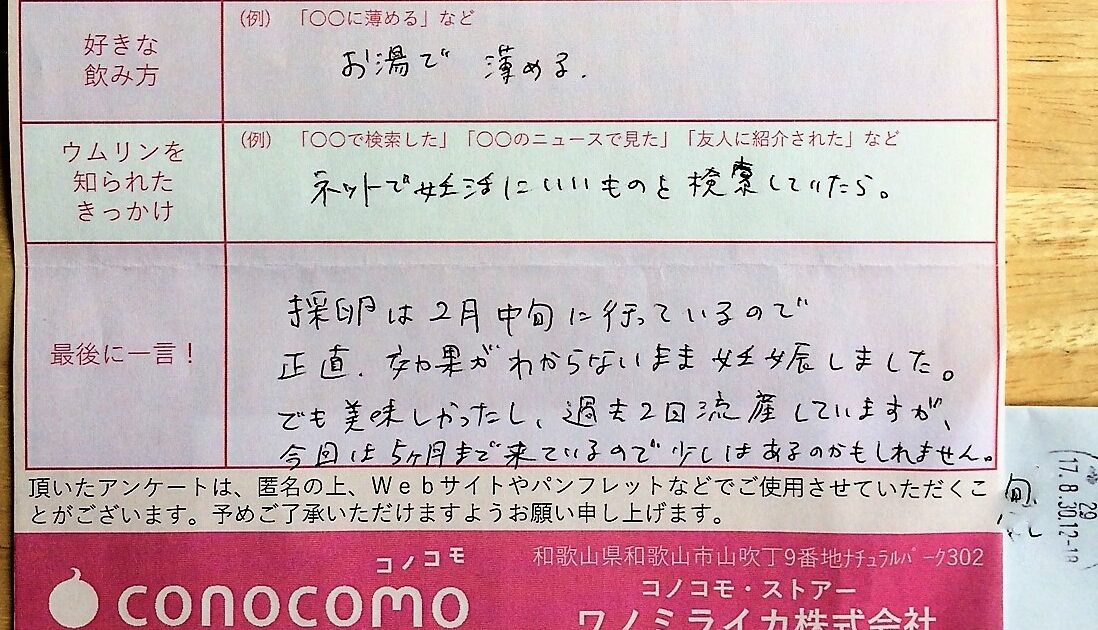 好きな
飲み方
(例) 「〇〇に薄める」など
お湯で 薄める.
ウムリンを
知られた
きっかけ
(例) 「〇〇で検索した」「〇〇のニュースで見た」「友人に紹介された」など
ネットで妊活にいいものを検索していたら。
最後に一言!
採卵は2月中旬に行っているので
正直、効果がわからないまま妊娠しました。
でも美味しかったし、過去2回流産していますが、
今回は5ヶ月まで来ているので少しはあるのかもしれません。
頂いたアンケートは、匿名の上、Webサイトやパンフレットなどでご使用させていただくこ
とがございます。予めご了承いただけますようお願い申し上げます。
コノコモ
conocomo
和歌山県和歌山市山吹丁9番地ナチュラルパーク302
コノコモ・ストアー
ワノミライカ株式会社
旬、
29
17.8.30.12-18